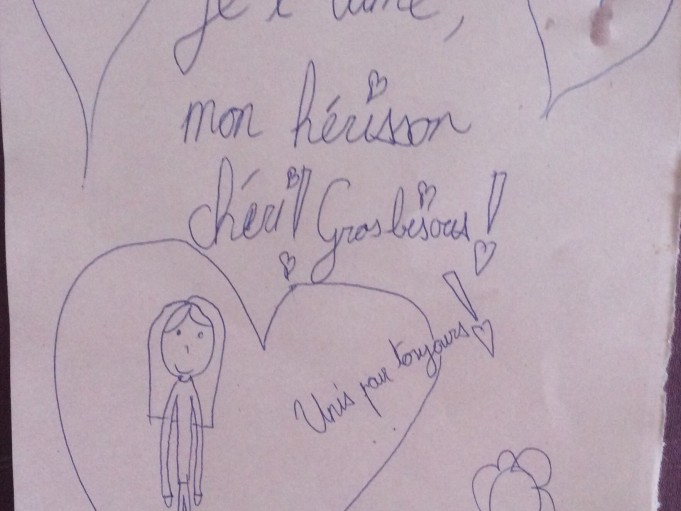 je t'aime,
mon hérisson
chéri! Gros bisous!
Unis pour toujours!